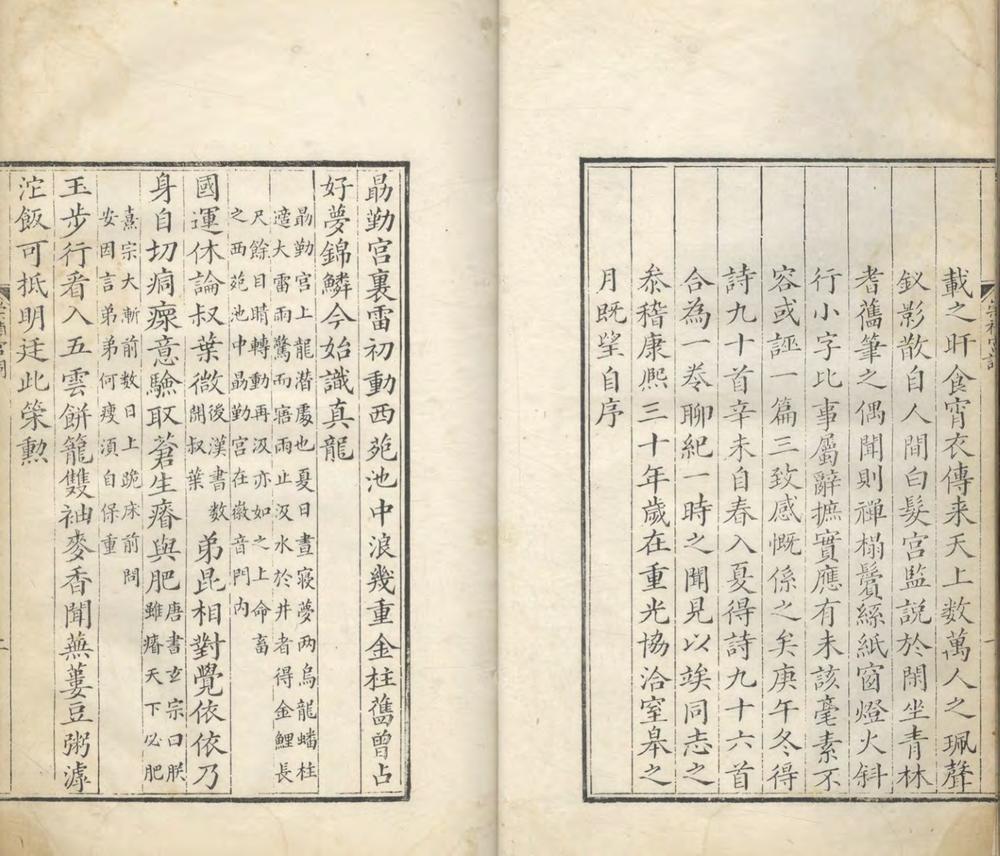 載之旰食宵衣傳来天上数萬人之珮聲
釵影散自人間白髮宮監説於閒坐青林
耆舊筆之偶聞則禅榻鬢絲紙窗燈火斜
行小字比事屬辭摭實應有未該毫素不
容或誣一篇三致感慨係之矣庚午冬得
詩九十首辛未自春入夏得詩九十六首
合為一卷聊紀一時之聞見以竢同志之
叅稽康熈三十年歲在重光協洽室皋之
月既望自序
勗勤宮裏雷初動西苑池中浪幾重金柱舊曾占
好夢錦鱗今始識真龍
勗勤宮上龍潛處也夏日晝寝夢两烏龍蟠柱
適大雷雨驚而寤雨止汲水於井者得金鯉長
尺餘目睛轉動再汲亦如之上命畜
之西苑池中勗勤宮在徽音門内
國運休論叔葉微後漢書数開叔葉弟昆相對覺依依乃
身自切痌瘝意驗取蒼生瘠與肥唐書玄宗曰朕雖瘠天下必肥
熹宗大漸前数日上跪床前問
安因言弟弟何瘦湏自保重
玉步行看入五雲餅籠雙袖麥香聞蕪蔞豆粥滹
沱飯可抵明廷此䇿勲